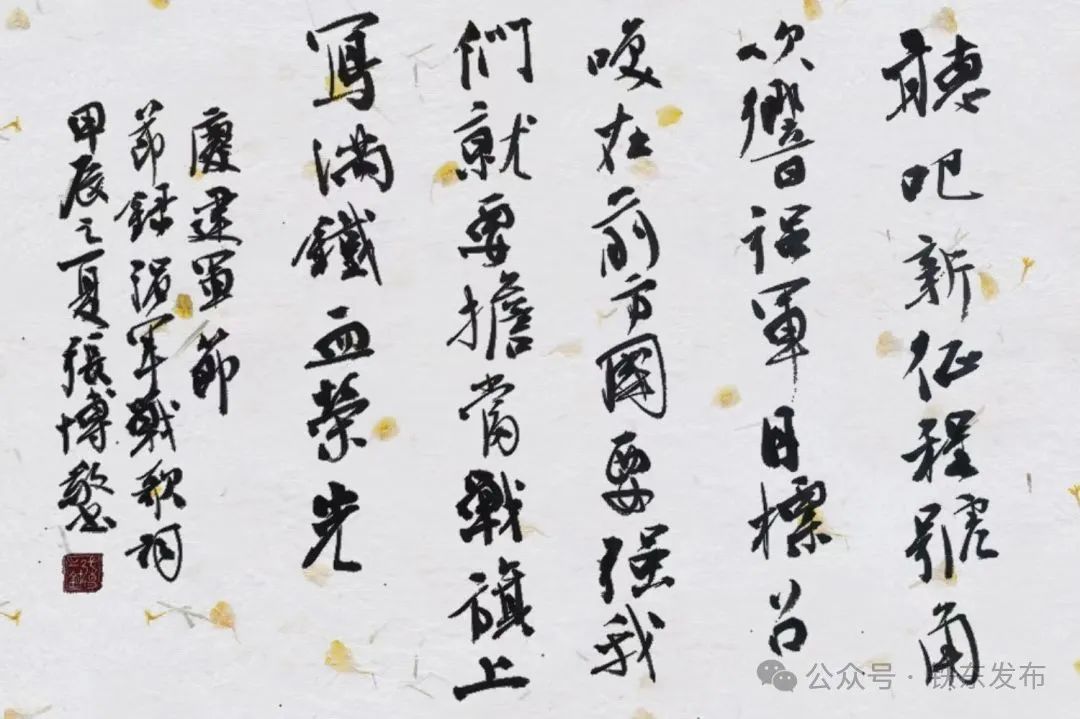 聽吧新征程號角
吹響强軍目標召
喚在前方國要强我
們就要擔當戰旗上
寫滿鐵血榮光
慶建軍節
節録强軍戰歌詞
甲辰之夏張博
公众号·铁东发布